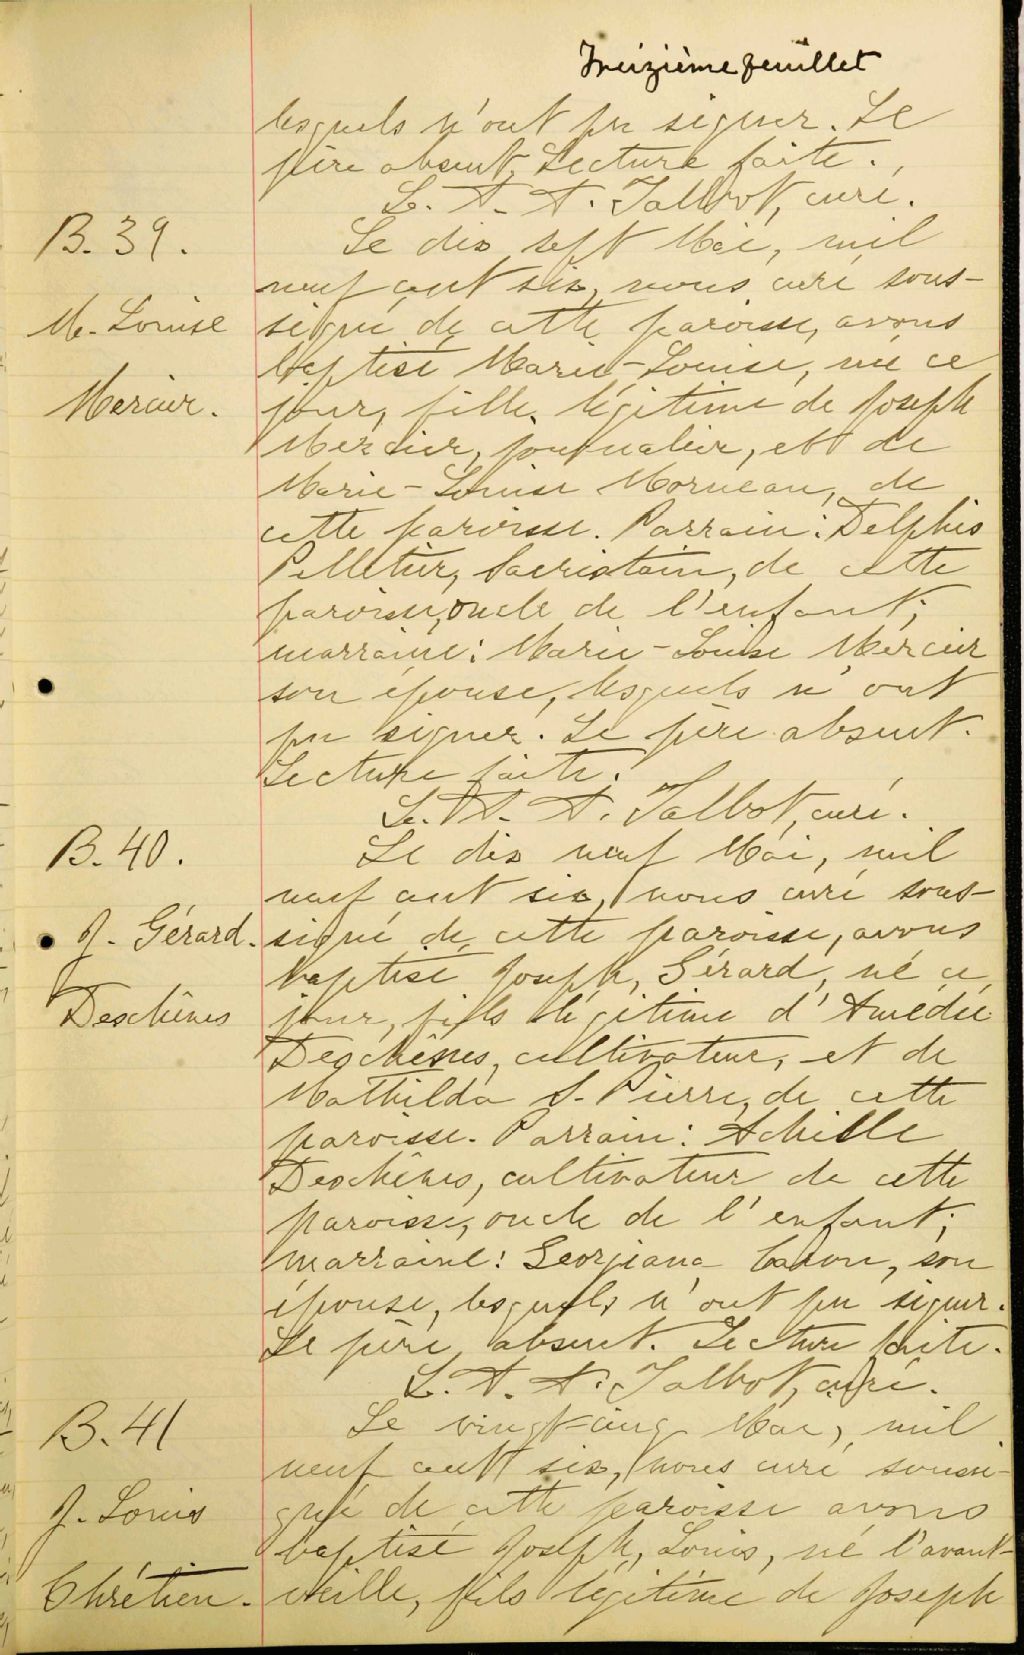 Treizième feuillet
lesquels n'ont pu signer. Le
père absent. Lecture faite.
L. A. A. Talbot, curé.
B. 39.
M. Louise
Mercier.
Le dix sept Mai, mil
neuf cent six, nous curé sous-
signé de cette paroisse, avons
baptisé Marie-Louise, née ce
jour, fille légitime de Joseph
Mercier, journalier, et de
Marie-Louise Morneau, de
cette paroisse. Parrain: Delphis
Pelletier, sacristain, de cette
paroisse, oncle de l'enfant;
marraine: Marie-Louise Mercier
son épouse, lesquels n'ont
pu signer. Le père absent.
Lecture faite.
L. A. A. Talbot, curé.
B. 40.
J. Gérard.
Deschênes
Le dix neuf Mai, mil
neuf cent six, nous curé sous-
signé de cette paroisse, avons
baptisé Joseph, Gérard, né ce
jour, fils légitime d'Amédée
Deschênes, cultivateur, et de
Mathilda S. Pierre, de cette
paroisse. Parrain: Achille
Deschênes, cultivateur de cette
paroisse, oncle de l'enfant;
marraine: Georgiana Caron, son
épouse, lesquels n'ont pu signer.
Le père absent. Lecture faite.
L. A. A. Talbot, curé.
B. 41
J. Louis
Chrétien.
Le vingt-cinq Mai, mil
neuf cent six, nous curé soussi-
gné de cette paroisse avons
baptisé Joseph, Louis, né l'avant-
veille, fils légitime de Joseph